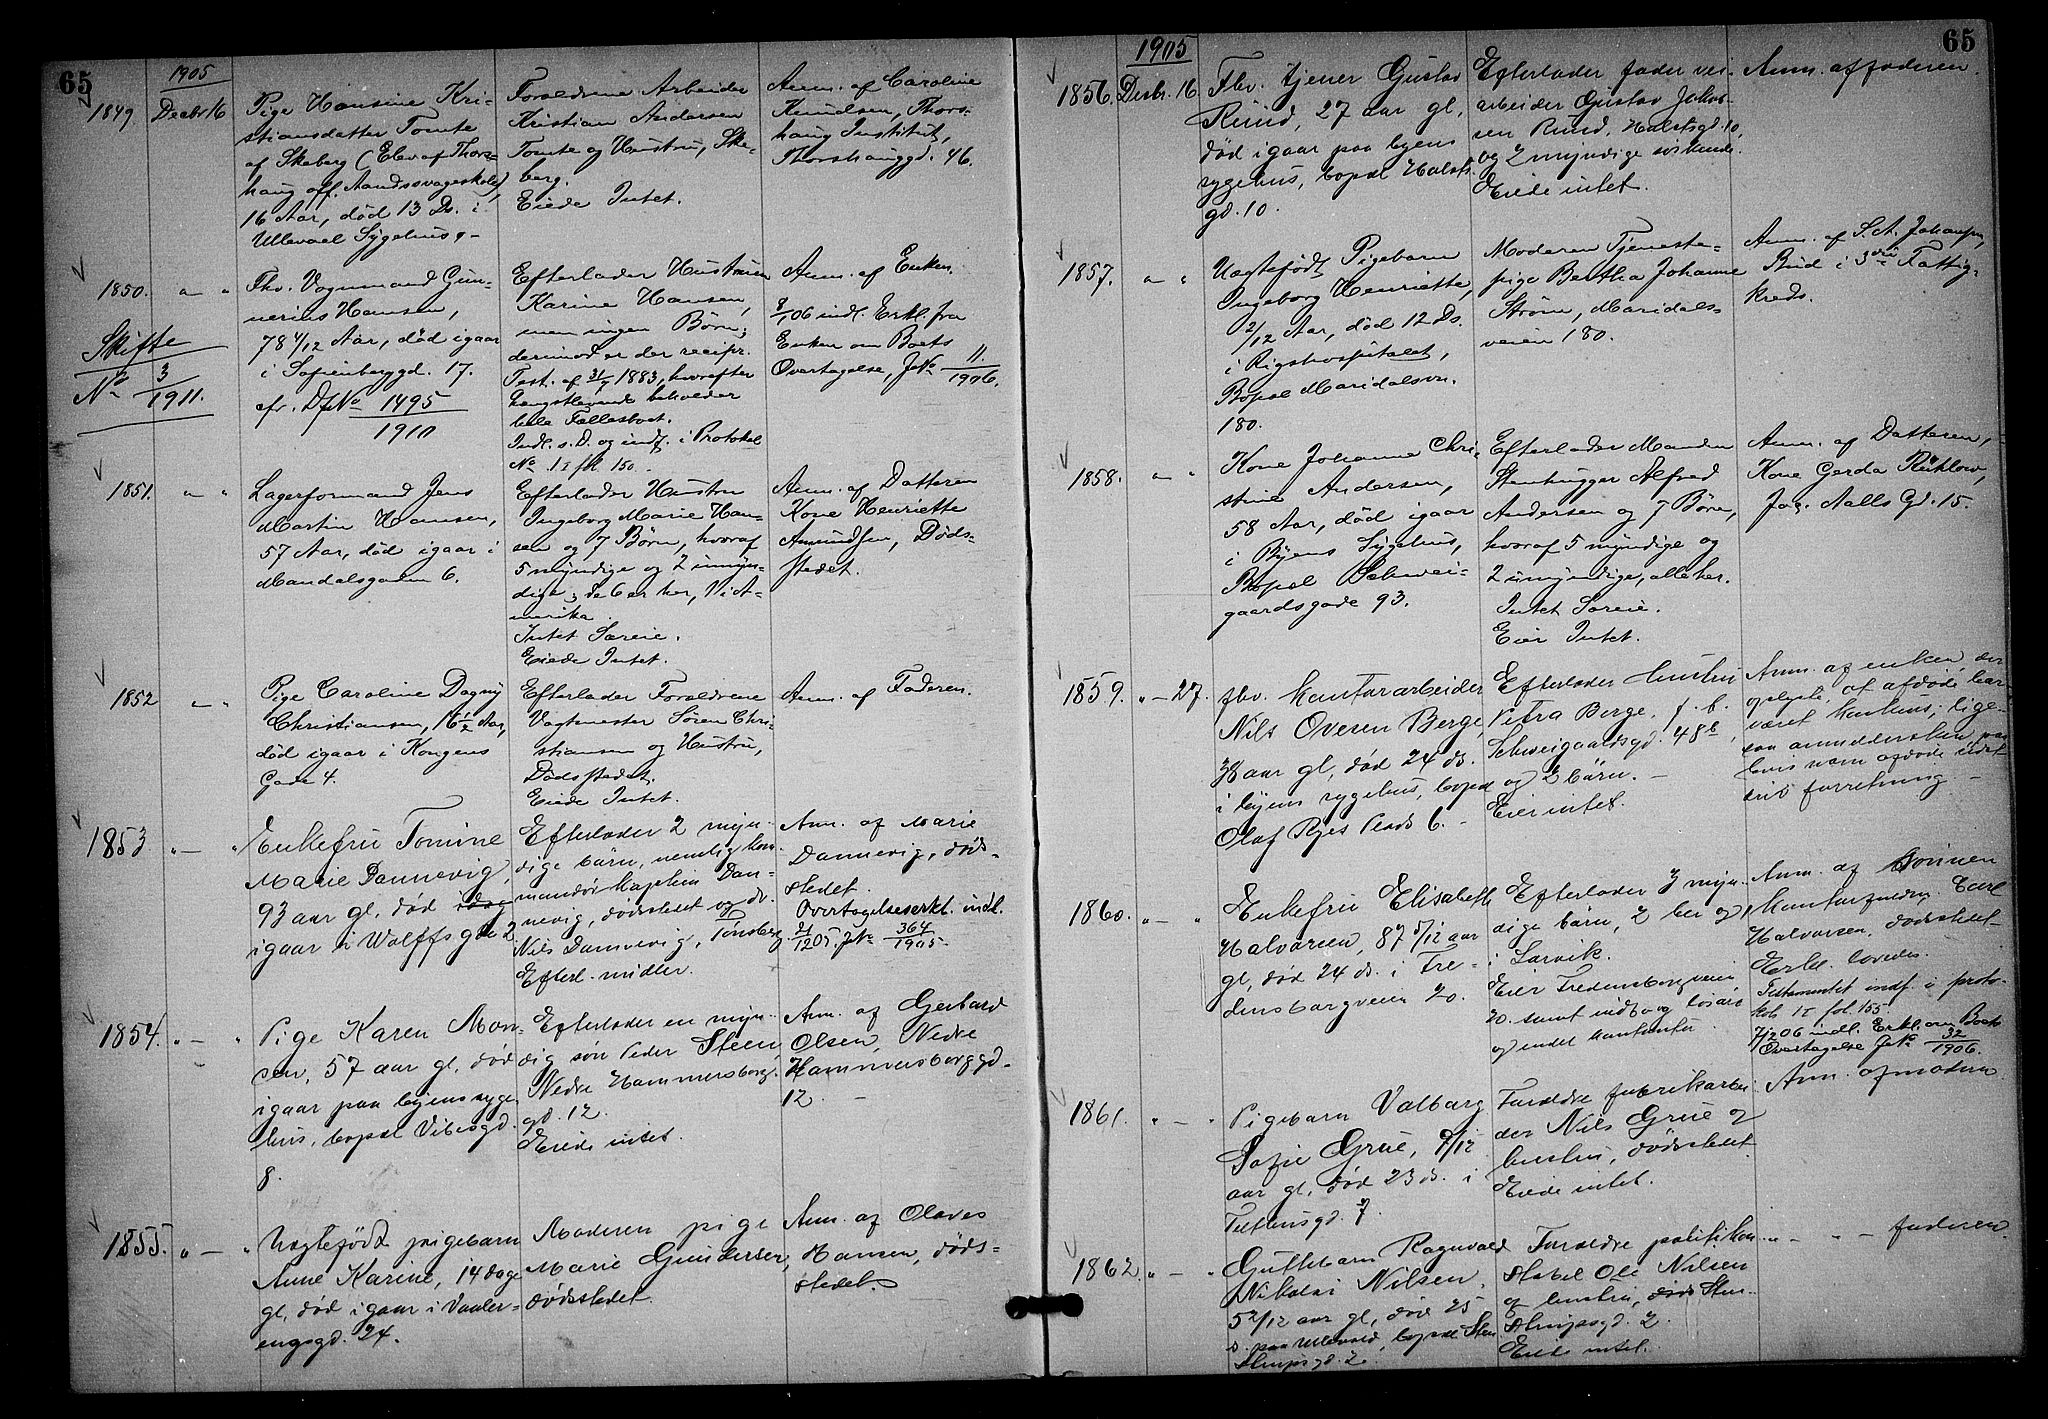 65
1905
1849 Decbr 16
Pige Hansine Kri-
stiansdatter Tomte
af Skeberg (Elev af Thors-
haug off. Aandssvageskole),
16 Aar, død 13 Ds. i
Ullevaal Sygehus.
Forældrene Arbeider
Kristian Andersen
Tomte og Hustru, Ske-
berg.
Eiede Intet.
Anm. af Caroline
Knudsen, Thors-
haug Institut,
Thorshauggd. 46.
1850. " "
Skifte
No 3/1911.
Fhv. Vognmand Gun-
nerius Hansen,
78 4/12 Aar, død igaar
i Sofienberggd. 17.
cfr. Df No 1495/1910
Efterlader Hustruen
Karine Hansen,
men ingen Børn;
derimod er der recipr.
Test. af 31/7 1883, hvorefter
Længstlevende beholder
hele Fællesboet.
Indl. s. D. og indf. i Protokol
No 1 I fol. 150.
Anm. af Enken.
8/1 06 indl. Erkl. fra
Enken om Boets
Overtagelse, J No 11/1906.
1851. " "
Lagerformand Jens
Martin Hansen,
57 Aar, død igaar i
Mandalsgaden 6.
Efterlader Hustru
Ingeborg Marie Han-
sen og 7 Børn, hvoraf
5 myndige og 2 umyn-
dige; de 6 er her, 1 i A-
merika.
Intet Særeie.
Eiede Intet.
Anm. af Datteren
Kone Henriette
Amundsen, Døds-
stedet.
1852 " "
Pige Caroline Dagny
Christiansen, 16 1/2 Aar,
død igaar i Kongens
Gade 4.
Efterlader Forældrene
Vagtmester Søren Chri-
stiansen og Hustru,
Dødsstedet.
Eiede Intet.
Anm. af Faderen.
1853 " — "
Enkefru Tomine
Marie Dannevig,
93 aar gl, død idag
igaar i Wolffsgd 2.
Efterlader 2 myn-
dige børn, nemlig kom-
mandørkaptein Dan-
nevig, dødsstedet og dr.
Nils Dannevig, Tønsberg
Efterl. midler.
Anm. af Marie
Dannevig, døds-
stedet.
Overtagelseserkl. indl.
21/12 05. J No 364/1905.
1854. " — "
Pige Karen Mon-
sen, 57 aar gl, død
igaar paa byens syge-
hus, bopæl Vibesgd.
8.
Efterlader en myn-
dig søn Peder Steen,
Nedre Hammersborg-
gd. 12.
Eiede intet.
Anm. af Gerhard
Olsen, Nedre
Hammersborggd.
12. —
1855. " — "
Uægtefødt pigebarn
Anne Karine, 14 dage
gl, død igaar i Vaaler-
engsgd. 24.
Moderen pige
Marie Gundersen,
dødsstedet.
Anm. af Olaves
Hansen, døds-
stedet.
65
1905
1856. Desbr. 16
Fhv. tjener Gustav
Ruud, 27 aar gl,
død igaar paa byens
sygehus, bopæl Halsts-
gd. 10.
Efterlader fader vei-
arbeider Gustav Jakob-
sen Ruud, Halstsgd. 10,
og 2 myndige søskende.
Eiede intet.
Anm. af faderen.
1857. " "
Uægtefødt Pigebarn
Ingeborg Henriette,
2/12 Aar, død 12 Ds.
i Rigshospitalet,
Bopæl Maridalsvn.
180.
Moderen Tjeneste-
pige Bertha Johanne
Strøm, Maridals-
veien 180.
Anm. af S. A. Johansen,
Bud i 3die Fattig-
kreds.
1858. " "
Kone Johanne Chri-
stine Andersen,
58 Aar, død igaar
i Byens Sygehus,
Bopæl Schwei-
gaardsgade 93.
Efterlader Manden
Stenhugger Alfred
Andersen og 7 Børn,
hvoraf 5 myndige og
2 umyndige, alle her.
Intet Særeie.
Eier Intet.
Anm. af Datteren,
Kone Gerda Rütlow,
Jac. Aalls Gd. 15.
1859. " — 27.
fhv. kontorarbeider
Nils Oversen Berge,
38 aar gl, død 24 ds.
i byens sygehus, bopæl
Olaf Ryes Plads 6. —
Efterlader hustru
Petra Berge, f. b.
Schweigaardsgd. 48b,
og 2 børn. —
Eier intet.
Anm. af enken, der
oplyste, at afdøde har
været konkurs; lige-
saa anmeldersken paa
hvis navn afdøde sidst
drev forretning —
1860. " — "
Enkefru Elisabeth
Halvorsen, 87 5/12 aar
gl, død 24 ds. i Fre-
densborgveien 20.
Efterlader 3 myn-
dige børn, 2 her og 1
i Larvik.
Eier Fredensborgveien
20. samt indbo og løsøre
og endel kontanter.
Anm. af sønnen
kontorfuldm. Carl
Halvorsen, dødsstedet—
Erkl. lovedes.
Testamentet indf. i proto-
kol I fol. 155.
7/2 06 indl. Erkl. om Boets
Overtagelse J No 32/1906.
1861. " — "
Pigebarn Valborg
Sofie Grue, 9/12
aar gl, død 23 ds. i
Tellensgd. 7.
Forældre fabrikarbei-
der Nils Grue og
hustru, dødsstedet.
Eiede intet.
Anm. af moderen
1862. " — "
Guttebarn Ragnvald
Nikolai Nilsen,
5 2/12 aar gl, død 25
ds. paa Ullevaal, bopæl Sten-
strupsgd. 2.
Forældre politikon-
stabel Ole Nilsen
og hustru, Sten-
strupsgd. 2.
Eiede intet.
" — " — faderen.